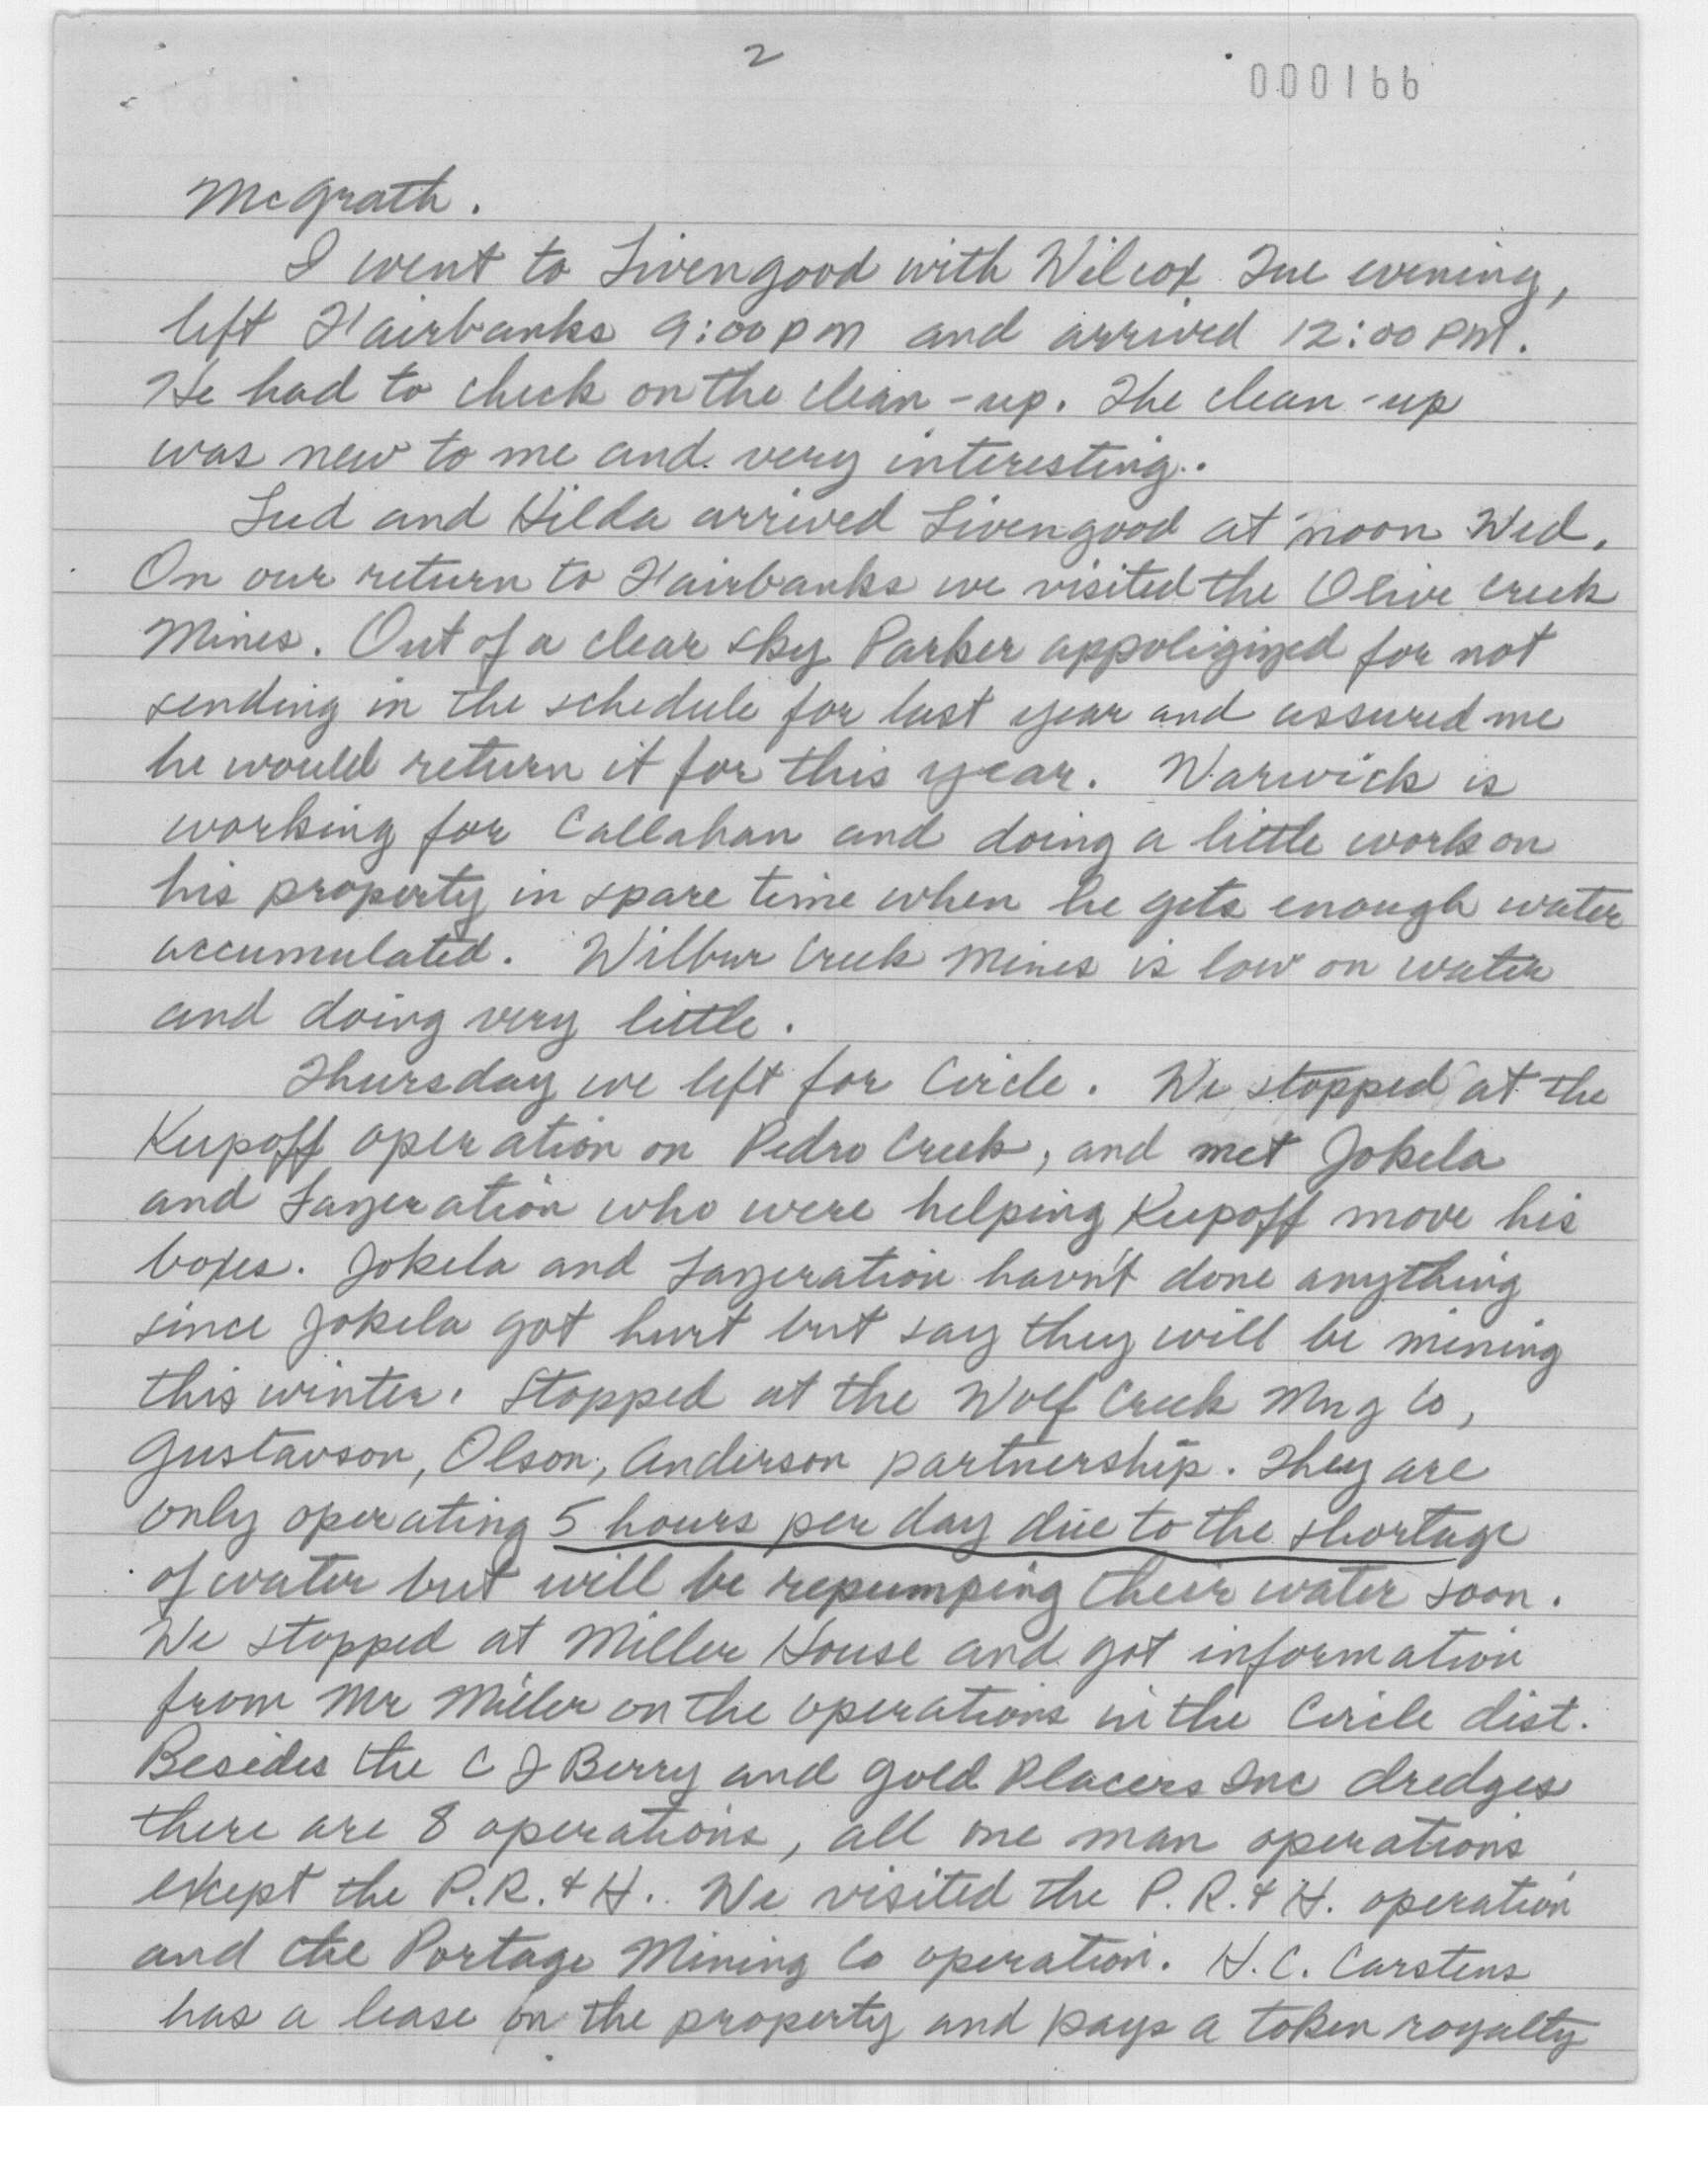 2
000166
McGrath.
I went to Livengood with Wilcox Tue evening,
left Fairbanks 9:00 pm and arrived 12:00 PM.
He had to check on the clean-up. The clean-up
was new to me and very interesting.
Lud and Hilda arrived Livengood at noon Wed.
On our return to Fairbanks we visited the Olive Creek
Mines. Out of a clear sky Parker appoligized for not
sending in the schedule for last year and assured me
he would return it for this year. Warwick is
working for Callahan and doing a little work on
his property in spare time when he gets enough water
accumulated. Wilbur Creek Mines is low on water
and doing very little.
Thursday we left for Circle. We stopped at the
Kupoff operation on Pedro Creek, and met Jokela
and who were helping Kupoff move his
boxes. Jokela and havn't done anything
since Jokela got hurt but say they will be mining
this winter. Stopped at the Wolf Creek Mng Co,
Gustavson, Olson, Anderson partnership. They are
only operating 5 hours per day due to the shortage
of water but will be repumping their water soon.
We stopped at Miller House and got information
from Mr Miller on the operations in the Circle dist.
Besides the C J Berry and Gold Placers Inc dredges
there are 8 operations, all one man operations
except the P.R. & H. We visited the P.R. & H. operation
and the Portage Mining Co operation. H.C. Carstens
has a lease on the property and pays a token royalty